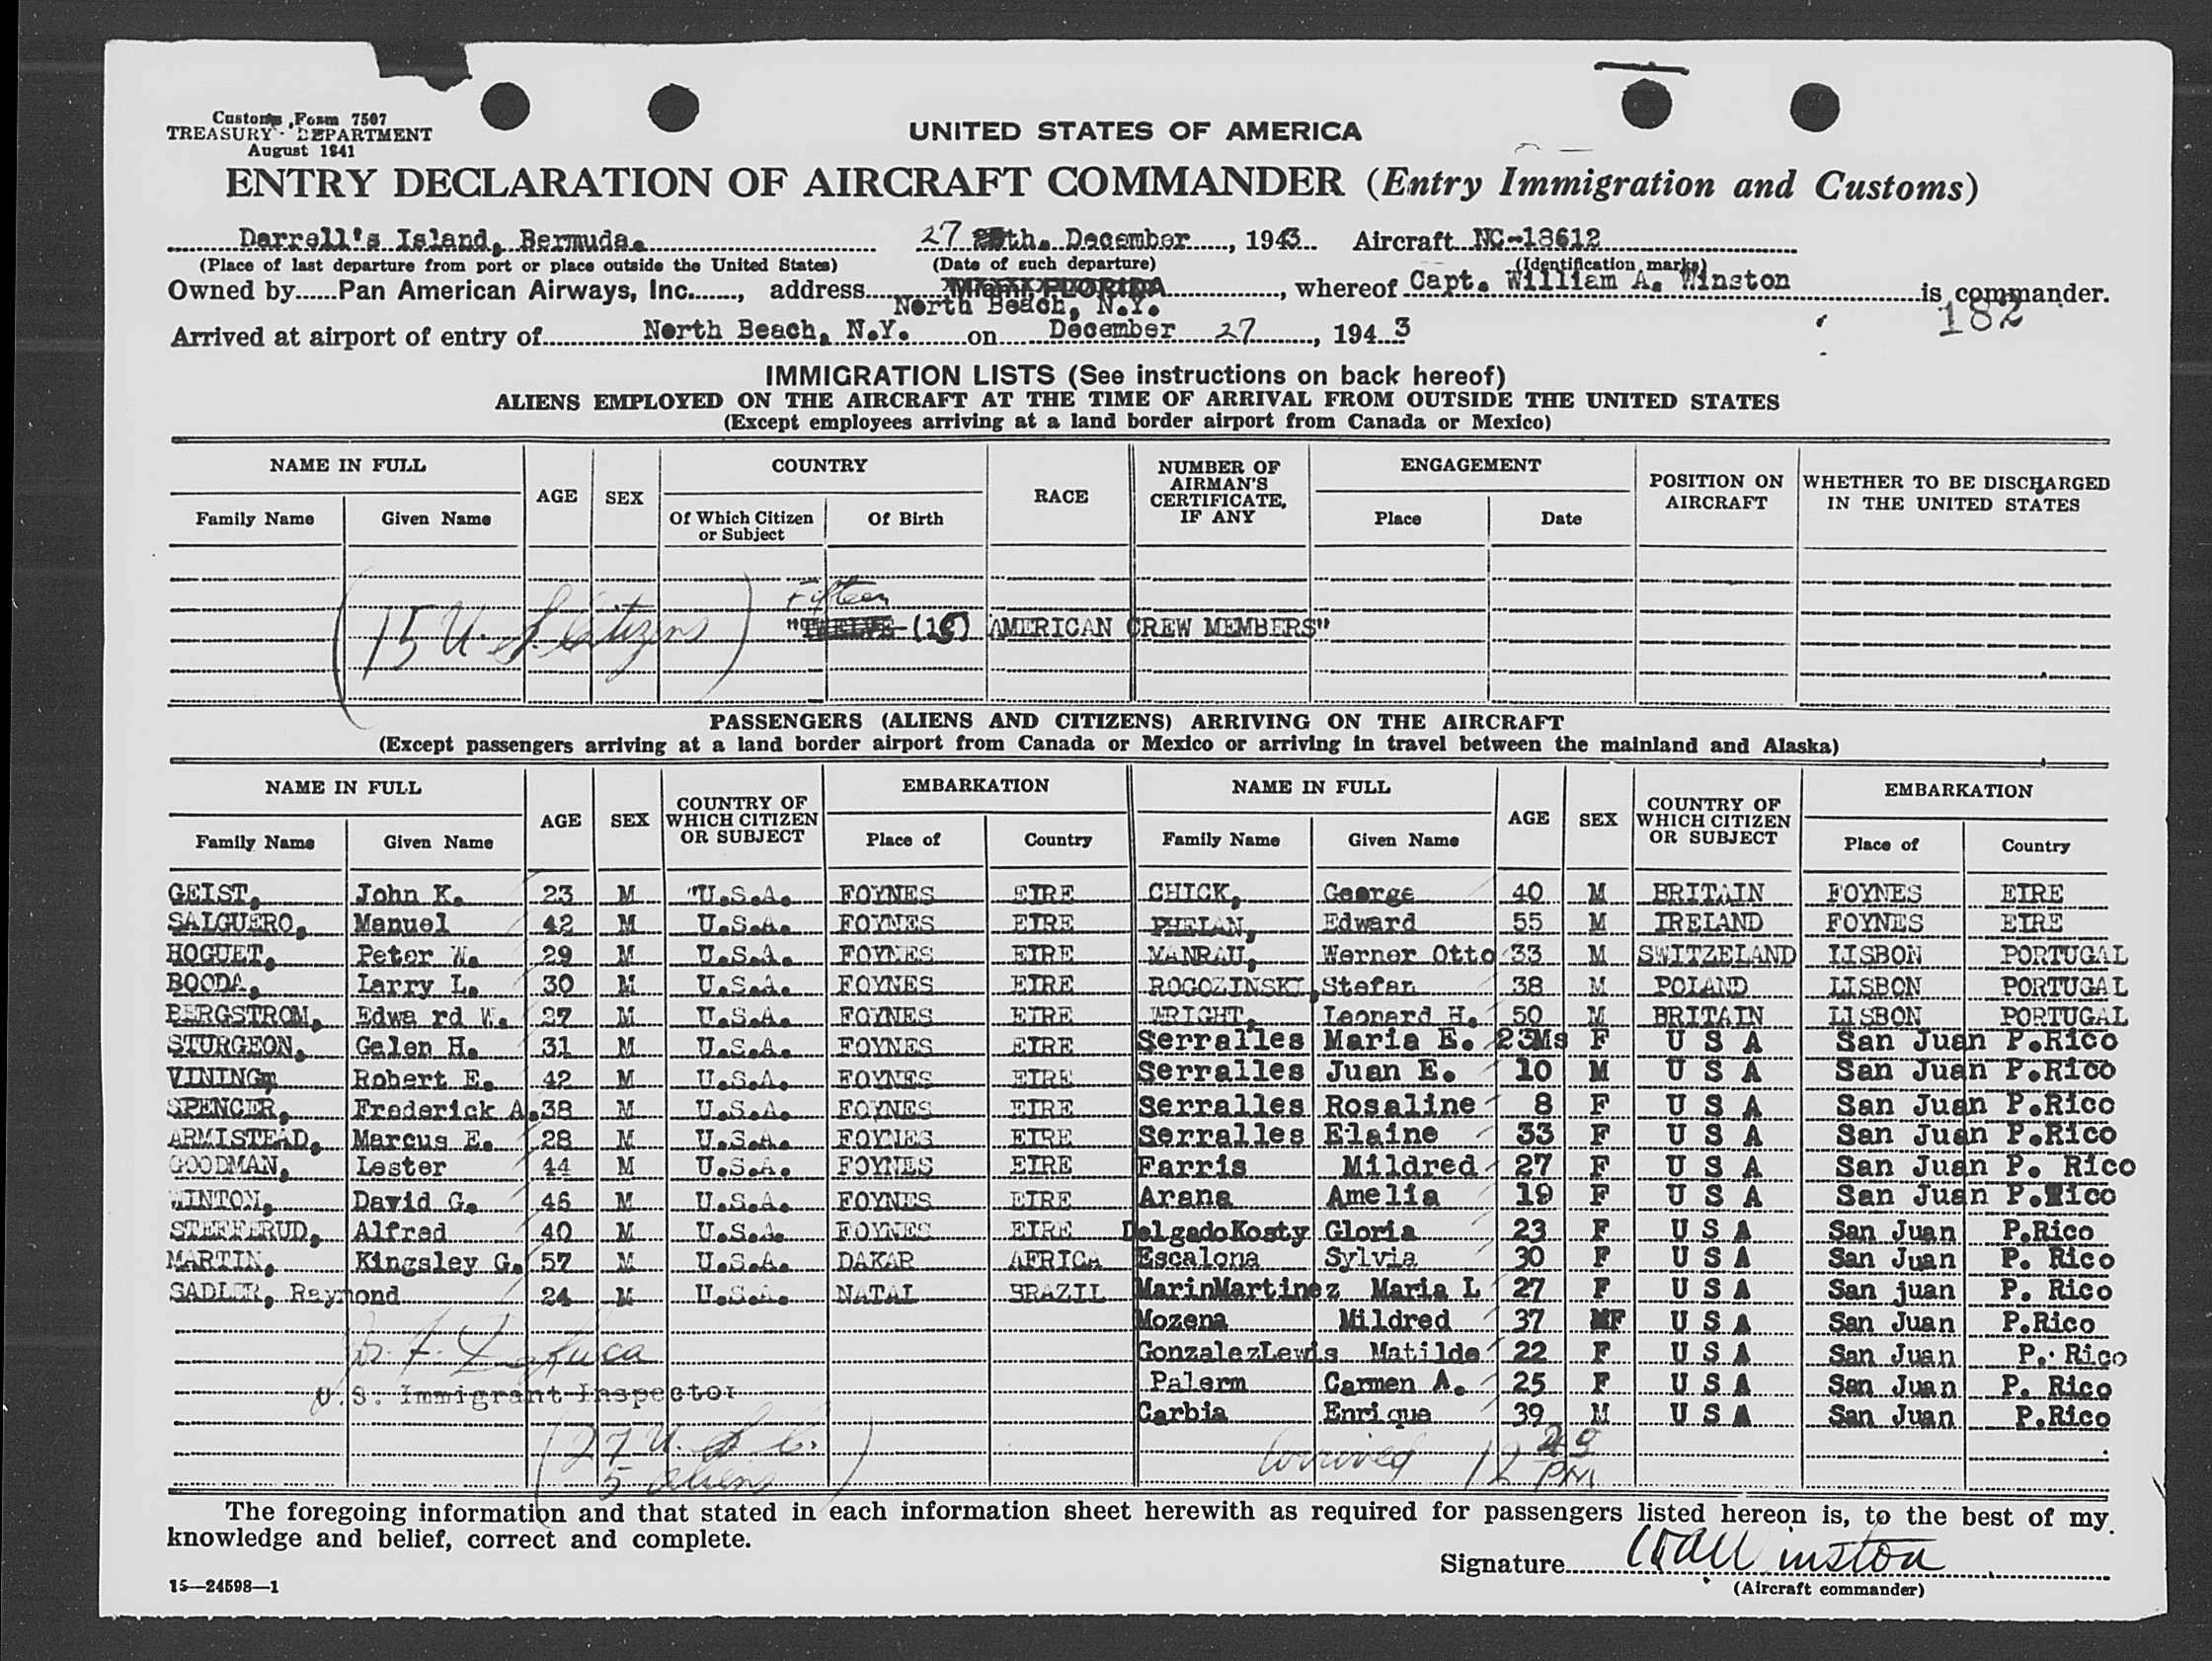 Customs Form 7507
TREASURY DEPARTMENT
August 1941
UNITED STATES OF AMERICA
ENTRY DECLARATION OF AIRCRAFT COMMANDER (Entry Immigration and Customs)
Darrell's Island, Bermuda. 27 th. December, 1943. Aircraft NC-18612
(Place of last departure from port or place outside the United States) (Date of such departure) (Identification marks)
Owned by Pan American Airways, Inc., address MIAMI FLORIDA, whereof Capt. William A. Winston is commander.
North Beach, N.Y.
182
Arrived at airport of entry of North Beach, N.Y. on December 27, 1943
IMMIGRATION LISTS (See instructions on back hereof)
ALIENS EMPLOYED ON THE AIRCRAFT AT THE TIME OF ARRIVAL FROM OUTSIDE THE UNITED STATES
(Except employees arriving at a land border airport from Canada or Mexico)
NAME IN FULL AGE SEX COUNTRY RACE NUMBER OF AIRMAN'S CERTIFICATE, IF ANY ENGAGEMENT POSITION ON AIRCRAFT WHETHER TO BE DISCHARGED IN THE UNITED STATES
Family Name Given Name Of Which Citizen or Subject Of Birth Place Date
Fifteen
(15 U.S. Citizens) "TWELVE (15) AMERICAN CREW MEMBERS"
PASSENGERS (ALIENS AND CITIZENS) ARRIVING ON THE AIRCRAFT
(Except passengers arriving at a land border airport from Canada or Mexico or arriving in travel between the mainland and Alaska)
NAME IN FULL AGE SEX COUNTRY OF WHICH CITIZEN OR SUBJECT EMBARKATION NAME IN FULL AGE SEX COUNTRY OF WHICH CITIZEN OR SUBJECT EMBARKATION
Family Name Given Name Place of Country Family Name Given Name Place of Country
GEIST, John K. 23 M "U.S.A. FOYNES EIRE CHICK, George 40 M BRITAIN FOYNES EIRE
SALGUERO, Manuel 42 M U.S.A. FOYNES EIRE PHELAN, Edward 55 M IRELAND FOYNES EIRE
HOGUET, Peter W. 29 M U.S.A. FOYNES EIRE MANRAU, Werner Otto 33 M SWITZELAND LISBON PORTUGAL
BOODA, Larry L. 30 M U.S.A. FOYNES EIRE ROGOZINSKI, Stefan 38 M POLAND LISBON PORTUGAL
BERGSTROM, Edwa rd W. 27 M U.S.A. FOYNES EIRE WRIGHT, Leonard H. 50 M BRITAIN LISBON PORTUGAL
STURGEON, Galen H. 31 M U.S.A. FOYNES EIRE Serralles Maria E. 23Ms F U S A San Juan P.Rico
VINING, Robert E. 42 M U.S.A. FOYNES EIRE Serralles Juan E. 10 M U S A San Juan P.Rico
SPENCER, Frederick A. 38 M U.S.A. FOYNES EIRE Serralles Rosaline 8 F U S A San Juan P.Rico
ARMISTEAD, Marcus E. 28 M U.S.A. FOYNES EIRE Serralles Elaine 33 F U S A San Juan P.Rico
GOODMAN, Lester 44 M U.S.A. FOYNES EIRE Farris Mildred 27 F U S A San Juan P. Rico
WINTON, David G. 46 M U.S.A. FOYNES EIRE Arana Amelia 19 F U S A San Juan P.Rico
STEFFERUD, Alfred 40 M U.S.A. FOYNES EIRE DelgadoKosty Gloria 23 F U S A San Juan P.Rico
MARTIN, Kingsley G. 57 M U.S.A. DAKAR AFRICA Escalona Sylvia 30 F U S A San Juan P. Rico
SADLER, Raymond 24 M U.S.A. NATAL BRAZIL MarinMartinez Maria L 27 F U S A San juan P. Rico
Mozena Mildred 37 MF U S A San Juan P.Rico
GonzalezLewis Matilde 22 F U S A San Juan P. Rico
U.S. Immigrant Inspector Palerm Carmen A. 25 F U S A San Juan P. Rico
Carbia Enrique 39 M U S A San Juan P.Rico
(27 U.S.C. 5 aliens) arrived 12 29 PM
The foregoing information and that stated in each information sheet herewith as required for passengers listed hereon is, to the best of my
knowledge and belief, correct and complete.
Signature WAWinston
15—24598—1 (Aircraft commander)